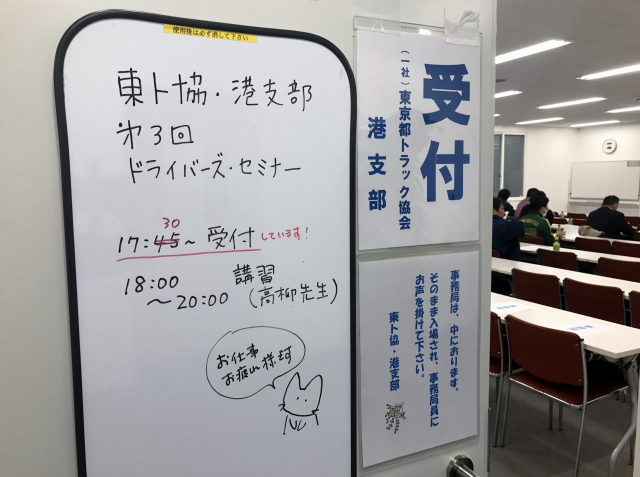 使用後は必ず消して下さい
東ト協・港支部
第3回
ドライバーズ・セミナー
17:45 30～ 受付 しています!
18:00
～20:00
講習
(高柳先生)
お仕事
お疲れ様です
受付
(一社)東京都トラック協会
港支部
事務局は、中におります。
そのまま入場され、事務局員に
お声を掛けて下さい。
東ト協・港支部